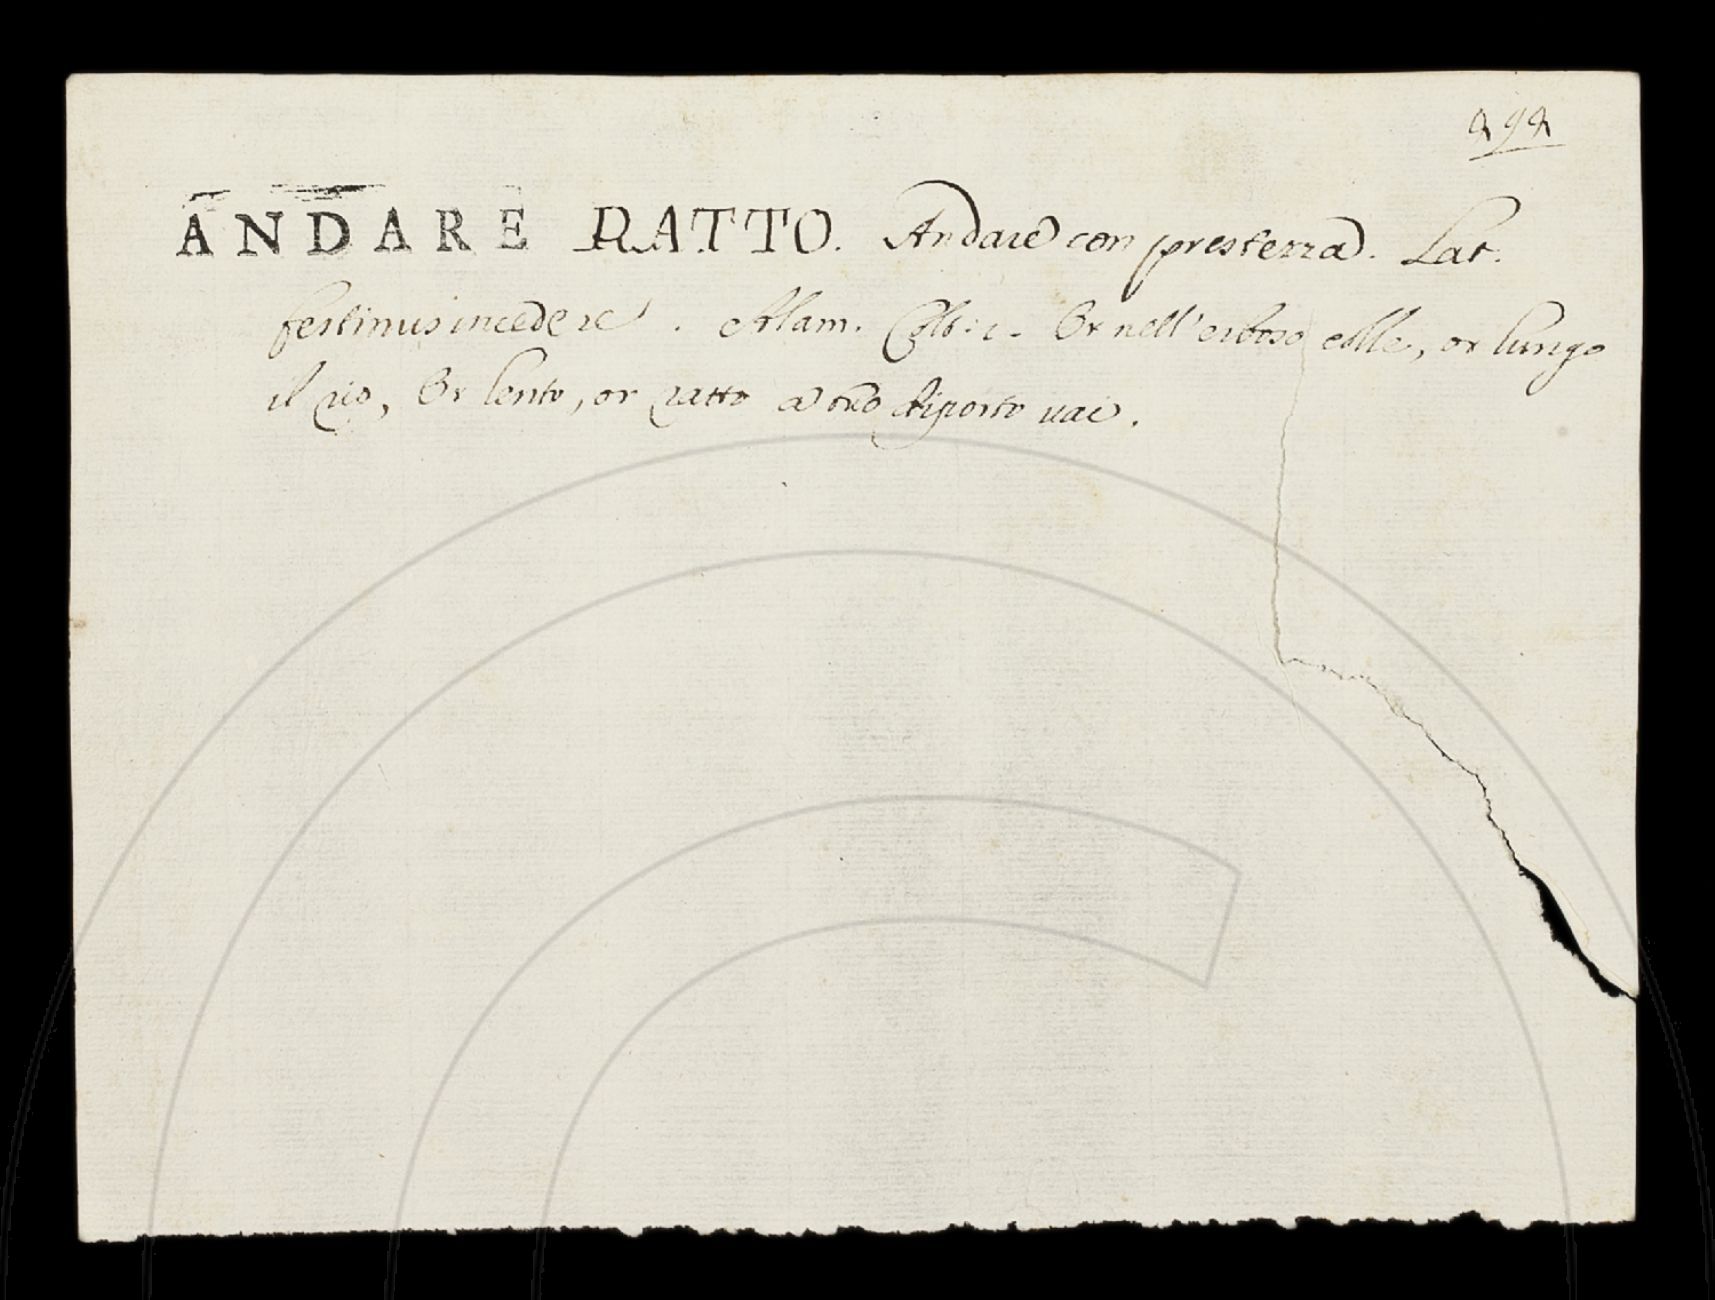 ANDARE RATTO. Andare con prestezza. Lat.
festinus incedere. Alam. Colt. 1. Or nell' erboso colle, or lungo
il rio, Or lento, or ratto a suo diporto vai.